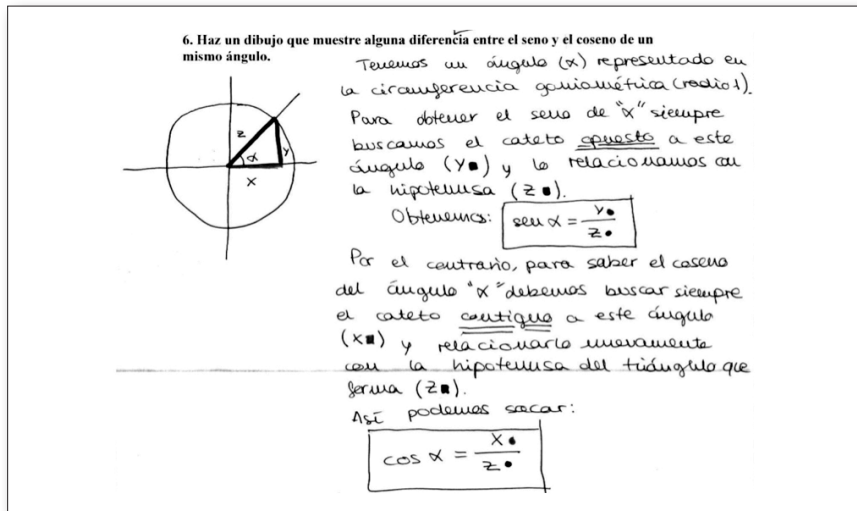 6. Haz un dibujo que muestre alguna diferencia entre el seno y el coseno de un
mismo ángulo.
Tenemos un ángulo (α) representado en
la circunferencia goniométrica (radio 1).
Para obtener el seno de "α" siempre
buscamos el cateto opuesto a este
ángulo (y) y lo relacionamos con
la hipotenusa (z).
Obtenemos: sen α = y/z
z
α
y
x
Por el contrario, para saber el coseno
del ángulo "α" debemos buscar siempre
el cateto contiguo a este ángulo
(x) y relacionarlo nuevamente
con la hipotenusa del triángulo que
forma (z).
Así podemos sacar:
cos α = x/z